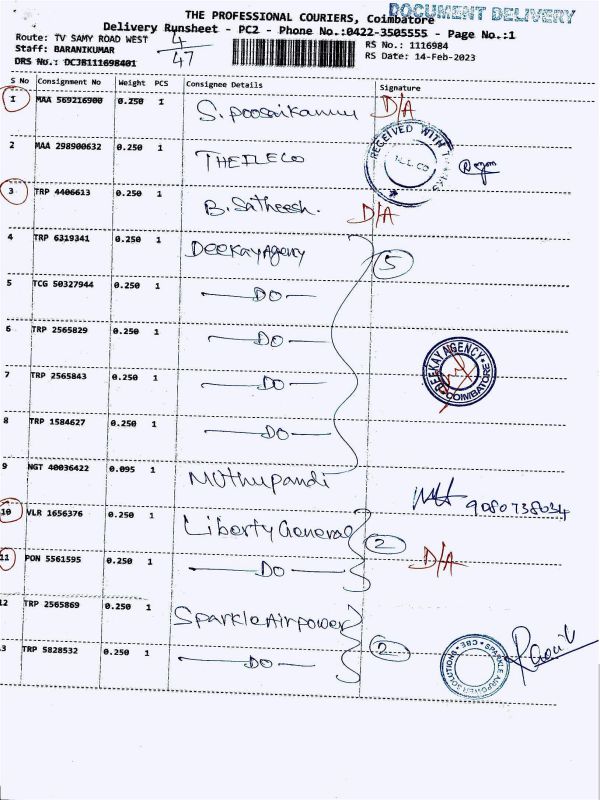 THE PROFESSIONAL COURIERS, Coimbatore
DOCUMENT DELIVERY
Delivery Runsheet - PC2 - Phone No.:0422-3505555 - Page No.:1
Route: TV SAMY ROAD WEST
4/47
RS No.: 1116984
Staff: BARANIKUMAR
RS Date: 14-Feb-2023
DRS No.: DCJB111698401
S No Consignment No Weight PCS Consignee Details Signature
1 MAA 569216900 0.250 1 S. Poosaikannu D/A
2 MAA 298900632 0.250 1 THEILECO
RECEIVED WITH THANKS
3 TRP 4406613 0.250 1 B. Satheesh. D/A
4 TRP 6319341 0.250 1 DEEKAY Agency 5
5 TCG 50327944 0.250 1 — DO —
6 TRP 2565829 0.250 1 — DO —
7 TRP 2565843 0.250 1 — DO —
DEEKAY AGENCY COIMBATORE
8 TRP 1584627 0.250 1 — DO —
9 NGT 40036422 0.095 1 Muthupandi
9080738634
10 VLR 1656376 0.250 1 Liberty General 2
11 PON 5561595 0.250 1 — DO — D/A
12 TRP 2565869 0.250 1 Sparkle Air power 2
3 TRP 5828532 0.250 1 — DO —
SPARKLE AIRPOWER SOLUTIONS CBE